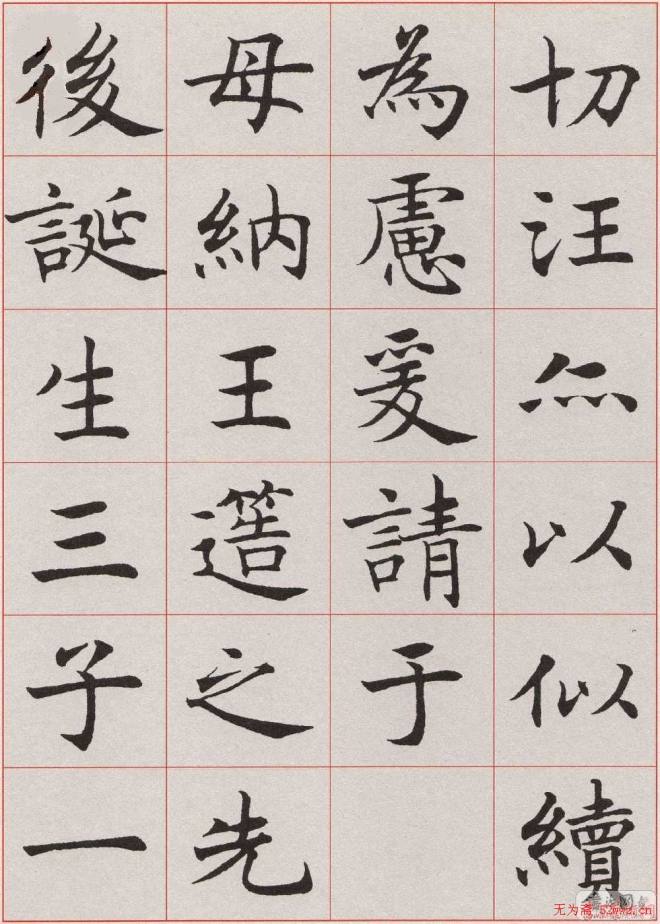 切汪以似續
為慮爰請于
母納王簉之先
後誕生三子一
无为斋-53wwz.cn